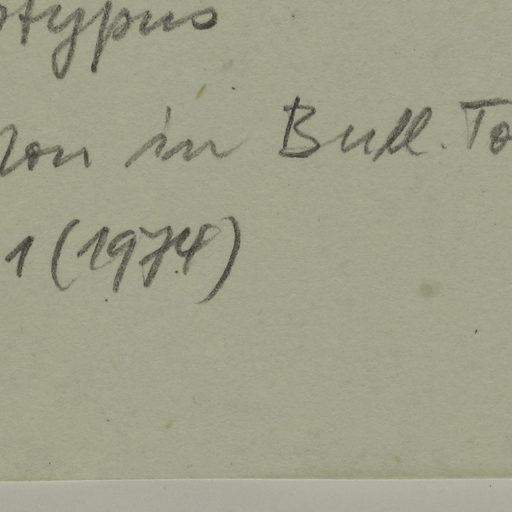 otypus
ron in Bull. To
1 (1974)